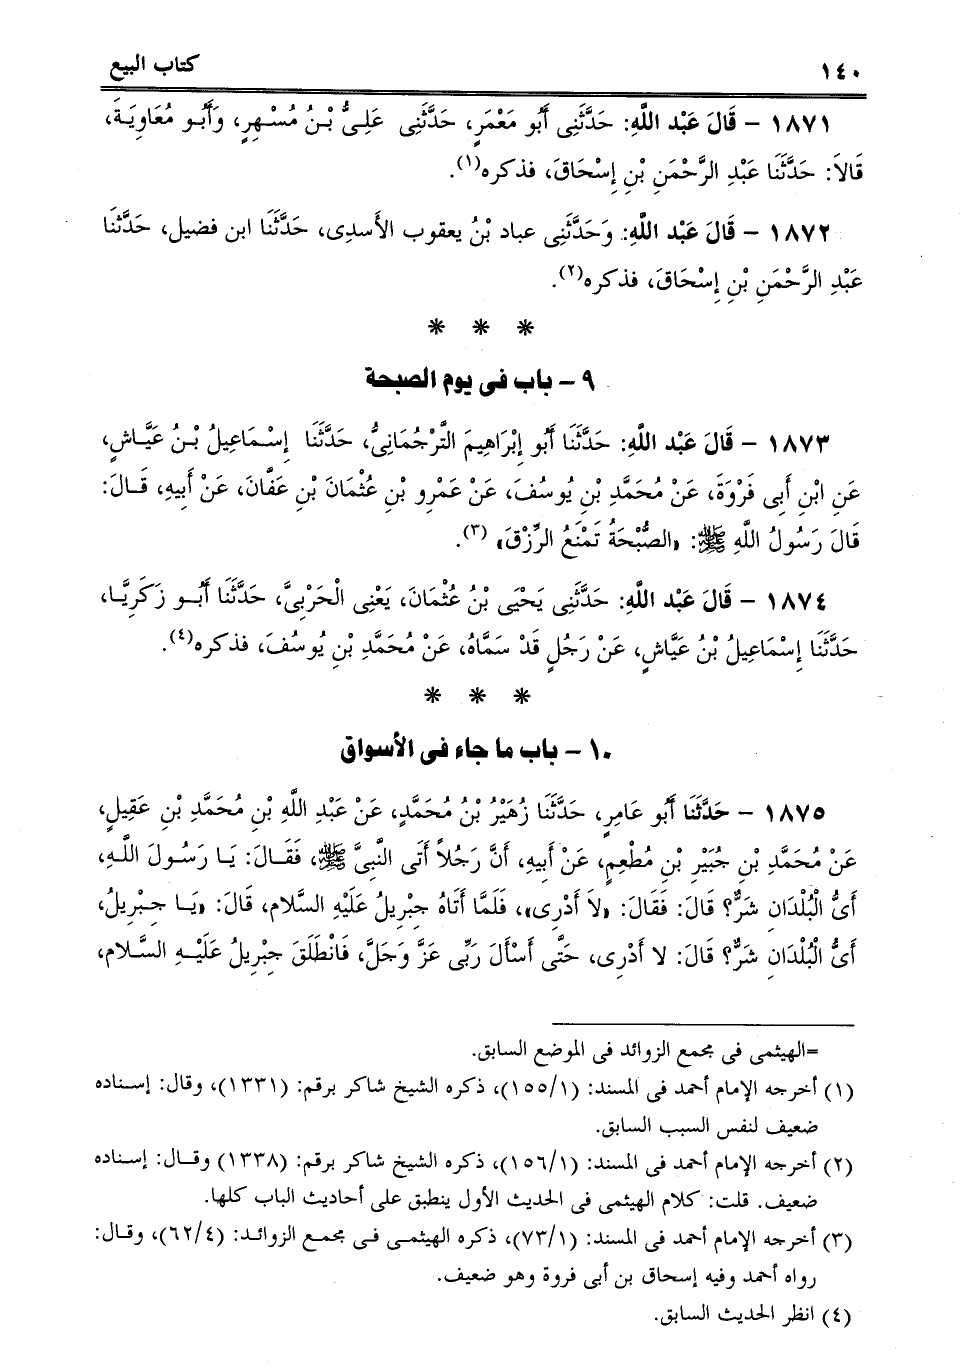 ١٤٠ كتاب البيع
١٨٧١ – قَالَ عَبْد اللَّهِ: حَدَّثَنِى أَبُو مَعْمَرٍ، حَدَّثَنِى عَلِىُّ بْنُ مُسْهِرٍ، وَأَبُو مُعَاوِيَةَ،
قَالاَ: حَدَّثَنَا عَبْدِ الرَّحْمَنِ بْنِ إِسْحَاقَ، فذكره(١).
١٨٧٢ – قَالَ عَبْد اللَّهِ: وَحَدَّثَنِى عباد بْنُ يعقوب الأَسدِى، حَدَّثَنَا ابن فضيل، حَدَّثَنَا
عَبْدِ الرَّحْمَنِ بْنِ إِسْحَاقَ، فذكره(٢).
* * *
٩ – باب فى يوم الصبحة
١٨٧٣ – قَالَ عَبْد اللَّهِ: حَدَّثَنَا أَبُو إِبْرَاهِيمَ التَّرْجُمَانِىُّ، حَدَّثَنَا إِسْمَاعِيلُ بْنُ عَيَّاشٍ،
عَنِ ابْنِ أَبِى فَرْوَةَ، عَنْ مُحَمَّدِ بْنِ يُوسُفَ، عَنْ عَمْرِو بْنِ عُثْمَانَ بْنِ عَفَّانَ، عَنْ أَبِيهِ، قَالَ:
قَالَ رَسُولُ اللَّهِ ﷺ: «الصُّبْحَةُ تَمْنَعُ الرِّزْقَ» (٣).
١٨٧٤ – قَالَ عَبْد اللَّهِ: حَدَّثَنِى يَحْيَى بْنُ عُثْمَانَ، يَعْنِى الْحَرْبِىَّ، حَدَّثَنَا أَبُو زَكَرِيَّا،
حَدَّثَنَا إِسْمَاعِيلُ بْنُ عَيَّاشٍ، عَنْ رَجُلٍ قَدْ سَمَّاهُ، عَنْ مُحَمَّدِ بْنِ يُوسُفَ، فذكره(٤).
* * *
١٠ – باب ما جاء فى الأسواق
١٨٧٥ – حَدَّثَنَا أَبُو عَامِرٍ، حَدَّثَنَا زُهَيْرُ بْنُ مُحَمَّدٍ، عَنْ عَبْدِ اللَّهِ بْنِ مُحَمَّدِ بْنِ عَقِيلٍ،
عَنْ مُحَمَّدِ بْنِ جُبَيْرِ بْنِ مُطْعِمٍ، عَنْ أَبِيهِ، أَنَّ رَجُلاً أَتَى النَّبِىَّ ﷺ، فَقَالَ: يَا رَسُولَ اللَّهِ،
أَىُّ الْبُلْدَانِ شَرٌّ؟ قَالَ: فَقَالَ: «لاَ أَدْرِى»، فَلَمَّا أَتَاهُ جِبْرِيلُ عَلَيْهِ السَّلام، قَالَ: «يَا جِبْرِيلُ،
أَىُّ الْبُلْدَانِ شَرٌّ؟ قَالَ: لا أَدْرِى، حَتَّى أَسْأَلَ رَبِّى عَزَّ وَجَلَّ، فَانْطَلَقَ جِبْرِيلُ عَلَيْهِ السَّلام،
=الهيثمى فى مجمع الزوائد فى الموضع السابق.
(١) أخرجه الإمام أحمد فى المسند: (١/‏١٥٥)، ذكره الشيخ شاكر برقم: (١٣٣١)، وقال: إسناده
ضعيف لنفس السبب السابق.
(٢) أخرجه الإمام أحمد فى المسند: (١/‏١٥٦)، ذكره الشيخ شاكر برقم: (١٣٣٨) وقال: إسناده
ضعيف. قلت: كلام الهيثمى فى الحديث الأول ينطبق على أحاديث الباب كلها.
(٣) أخرجه الإمام أحمد فى المسند: (١/‏٧٣)، ذكره الهيثمى فى مجمع الزوائد: (٤/‏٦٢)، وقال:
رواه أحمد وفيه إسحاق بن أبى فروة وهو ضعيف.
(٤) انظر الحديث السابق.